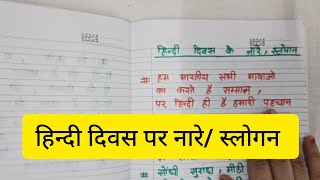 हिन्दी दिवस के नारे, स्लोगान
# हम भारतीय सभी भाषाओ
का करते है सम्मान,
पर हिन्दी ही है हमारी पहचान
हिन्दी दिवस पर नारे/ स्लोगन
# सोंधी सुगन्ध, मीठी